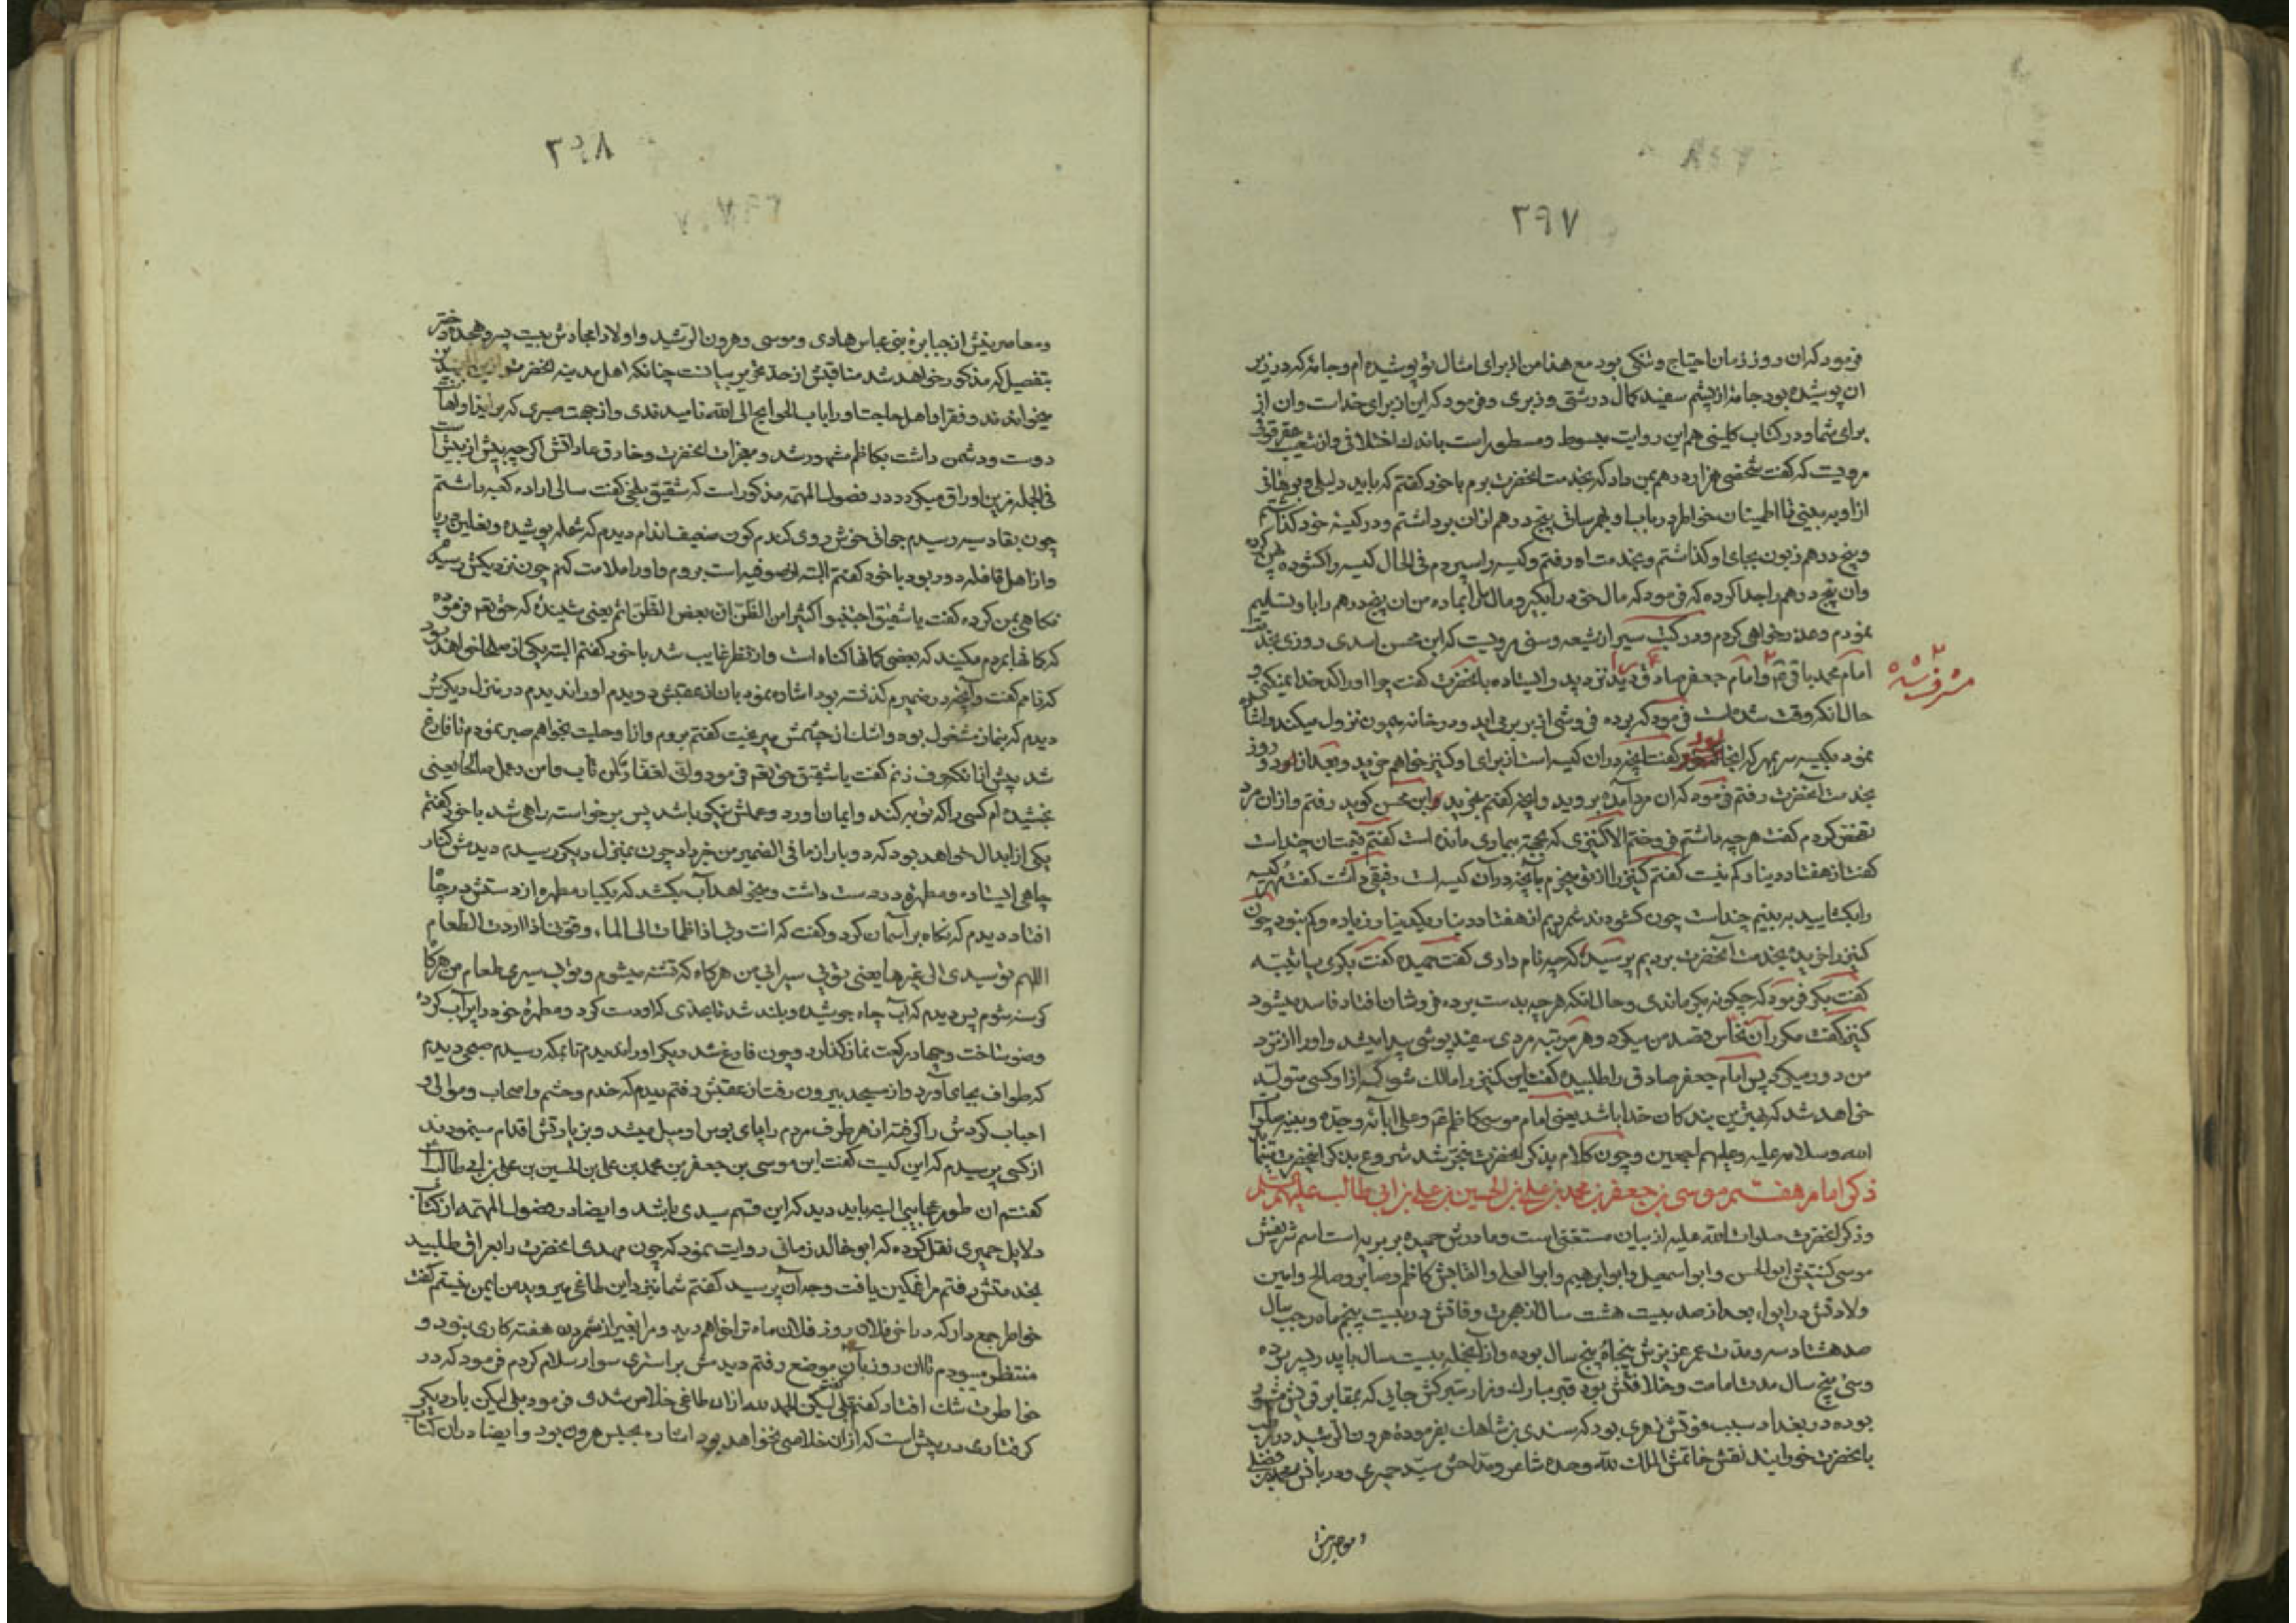 ۲۹۷
فرمود که ان روز زمان احتیاج و تنکی بود مع هذا من از برای امثال تو پوشیده ام و جامهٔ که در زیر
ان پوشیده بود جامهٔ از پشم سفید کمال درشتی و زبری و فرمود که این از برای خداست و ان از
برای شما و در کتاب کلینی هم این روایت مبسوط و مسطور است باندک اختلافی و از شعیب عقرقوفی
مرویست که کفت شخصی هزار درهم بمن داد که بخدمت انحضرت برم با خود کفتم که باید دلیلی و
از او به بینی تا اطمینان خواطر در باب او بهم رسانی پنج درهم ازان برداشتم و در کیسه خود کذاشتم
و پنج درهم زبون بجای او کذاشتم و بخدمت او رفتم و کیسه را سپردم فی الحال کیسه را کشوده
وان پنج درهم را جدا کرده که فرمود که مال خود را بکیر و مال ما را بما ده من ان پنج درهم را باو تسلیم
نمودم و عذر خواهی کردم و در کتب سیر از شیعه و سنی مرویست که ابن محسن اسدی روزی بخدمت
امام محمد باقر ع و امام جعفر صادق را دید نزد پدر ایستاده بانحضرت کفت چرا او را کدخدا نمیکنی و
حال انکه وقت شده است فرمود که برده فروشی از بربر می اید و در خانه میمون نزول میکند و اشاره
نمود بکیسه سر بمهر که انجا بود کفت انچه دران کیسه است از برای او کنیز خواهم خرید و بعد از دو روز
بخدمت انحضرت رفتم فرمود که ان مرد آمده بروید و انچه کفتم بخرید ابن محسن کوید رفتم و ازان مرد
تفحص کردم کفت هر چه داشتم فروختم الا کنیزی که بجهة بیماری مانده است کفتم قیمت ان چند است
کفت از هفتاد دینار کم نیست کفتم کنیز را از تو میخرم بآنچه در آن کیسه است رفیقی داشت کفت مهر کیسه
را بکشایید به بینیم چند است چون کشودند شمردیم از هفتاد دینار یکدینار زیاده و کم نبود چون
کنیز را خریده بخدمت آنحضرت بردیم پرسید که چه نام داری کفت حمیده کفت بکری یا ثیبه
کفت بکر فرمود که چکونه بکر ماندی و حال انکه هر چه بدست برده فروشان افتاد فاسد میشود
کنیز کفت مکرر آن نخاس قصد من میکرد و هر مرتبه مردی سفید پوشی پیدا میشد و او را از نزد
من دور میکرد پس امام جعفر صادق را طلبیده کفت این کنیز را مالک شو که از او کسی متولد
خواهد شد که بهترین بندکان خدا باشد یعنی امام موسی کاظم ع و علی ابائه وجده و بنیه صلوات
الله و سلامه علیه و علیهم اجمعین و چون کلام بذکر انحضرت منجر شد شروع بذکر انحضرت
ذکر امام هفتم موسی بن جعفر بن محمد بن علی بن الحسین بن علی بن ابی طالب علیهم السلم
و ذکر انحضرت صلوات الله علیه از بیان مستغنی است و مادرش حمیده بربریه است اسم شریفش
موسی کنیتش ابو الحسن و ابو اسمعیل و ابو ابرهیم و ابو العلی و القابش کاظم و صابر و صالح و امین
ولادتش در ابواء بعد از صد بیست هشت سال از هجرت و فاتش در بیست پنجم ماه رجب سال
صد هشتاد سه و مدت عمر عزیزش پنجاه پنج سال بوده و از آنجمله بیست سال با پدر بسر برده
و سی پنج سال مدت امامت و خلافتش بود قبر مبارک و مزار متبرکش جایی که بمقابر قریش مشهور
بوده در بغداد سبب فوتش زهری بود که سندی بن شاهک بفرمودهٔ هرون الرشید در رطب
بانحضرت خورانید نقش خاتمش الملک لله وحده شاعر و مداحش سید حمیری و دربانش محمد بن فضل
ومعاصرینش
۳۹۸
ومعاصرینش از جبابرهٔ بنی عباس هادی و موسی و هرون الرشید و اولاد امجادش بیست پسر و هجده دختر
بتفصیل که مذکور خواهد شد مناقبش از حد تحریر بیانست چنانکه اهل مدینه انحضرت را زین المجتهدین
میخوانده اند و فقرا و اهل حاجت او را باب الحوایج الی الله نامیدندی و از جهت صبری که بر ایذا
دوست و دشمن داشت بکاظم مشهور شد و معجزات انحضرت و خارق عاداتش اکرچه بیش از بیش است
فی الجمله زین اوراق میکردد در فصول المهمه مذکور است که شقیق بلخی کفت سالی اراده کعبه داشتم
چون بقادسیه رسیدم جوانی خوش روی کندم کون ضعیف اندام دیدم که شمله پوشیده و نعلین در پا
و از اهل قافله دور بود با خود کفتم البته از صوفیه است بروم و او را ملامت کنم چون نزدیکش رسیدم
نکاهی بمن کرده کفت یا شقیق اجتنبوا کثیرا من الظن ان بعض الظن اثم یعنی شنیدهٔ که حق تعم فرموده
که کمانها بمردم مکنید که بعضی کمانها کناه است و از نظر غایب شد با خود کفتم البته یکی از صلحا خواهد بود
که نامم کفت و آنچه در ضمیرم کذشته بود اشاره نمود بان از عقبش دویدم او را ندیدم در منزل دیکرش
دیدم که بنماز مشغول بود و اشک از چشمش میریخت کفتم بروم و از او حلیت بخواهم صبر نمودم تا فارغ
شد پیش از انکه حرف زنم کفت یا شقیق حق تعم فرمود وانی لغفار لمن تاب وامن وعمل صالحا یعنی
بخشیده ام کسی را که توبه کند و ایمان اورد و عملش نیکو باشد پس برخواسته راهی شد با خود کفتم
یکی از ابدال خواهد بود که دو بار از ما فی الضمیر من خبر داد چون بمنزل دیکر رسیدم دیدمش کنار
چاهی ایستاده و مطهرهٔ در دست داشت و میخواهد آب بکشد که یکبار مطهره از دستش در چاه
افتاد دیدم که نکاه بر آسمان کرد و کفت که انت ربی اذا ظمات الی الماء وقوتی اذا اردت الطعام
اللهم تو سیدی الی غیرها یعنی توئی سیرابی من هر کاه که تشنه میشوم و توئی سیری طعام من هر کاه
کرسنه شوم پس دیدم که آب چاه جوشیده و بلند شد تا بحدی که او دست کرد و مطهرهٔ خود را پر آب کرده
وضو ساخت و چهار رکعت نماز کذارد و چون فارغ شد دیکر او را ندیدم تا بمکه رسیدم صبحی دیدم
که طواف بجای آورد و از مسجد بیرون رفت از عقبش رفتم دیدم که خدم و حشم و اصحاب و موالی و
احباب کردش را کرفته از هر طرف مردم را پای بوس او میل میشد و بزیارتش اقدام مینمودند
از کسی پرسیدم که این کیست کفت این موسی بن جعفر بن محمد بن علی بن الحسین بن علی بن ابی طالب است
کفتم ان طور عجایبی البته باید دید که این قسم سیدی باشد و ایضا در فصول المهمه از کتاب
دلایل حمیری نقل کرده که ابو خالد زمانی روایت نمود که چون مهدی انحضرت را بعراق طلبید
بخدمتش رفتم مرا غمکین یافت وجه آن پرسید کفتم شما نزد این طاغی میروید من ایمن نیستم کفت
خواطر جمع دار که در اخر فلان روز فلان ماه ترا خواهم دید و مرا بغیر از شمردن هفته کاری نبود و
منتظر میبودم تا ان روز بآن موضع رفتم دیدمش بر استری سوار سلام کردم فرمود که در
خواطرت شک افتاد کفتم بلی لیکن الحمد لله ازان طاغی خلاص شدی فرمود بلی لیکن بار دیکر
کرفتاری در پیش است که ازان خلاصی نخواهد بود اشاره بحبس هرون بود و ایضا دران کتاب